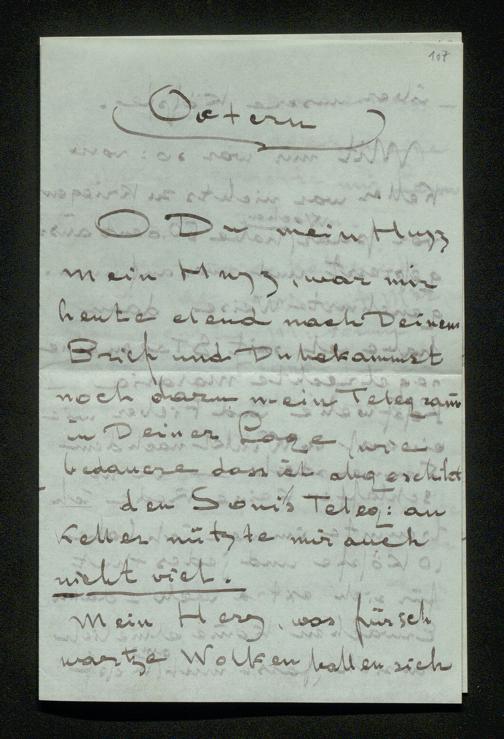 107
Ostern
O Du mein Huzz
mein Huzz, war mir
heute elend nach Deinem
Brief und Du bekammst
noch darn mein Telegram
in Deiner Lage, wie
bedauere dass ich abgeschikt
den Sonis Teleg: an
Keller nützte mir auch
nicht viel.
Mein Herz, was für sch
wartze Wolken ballen sich